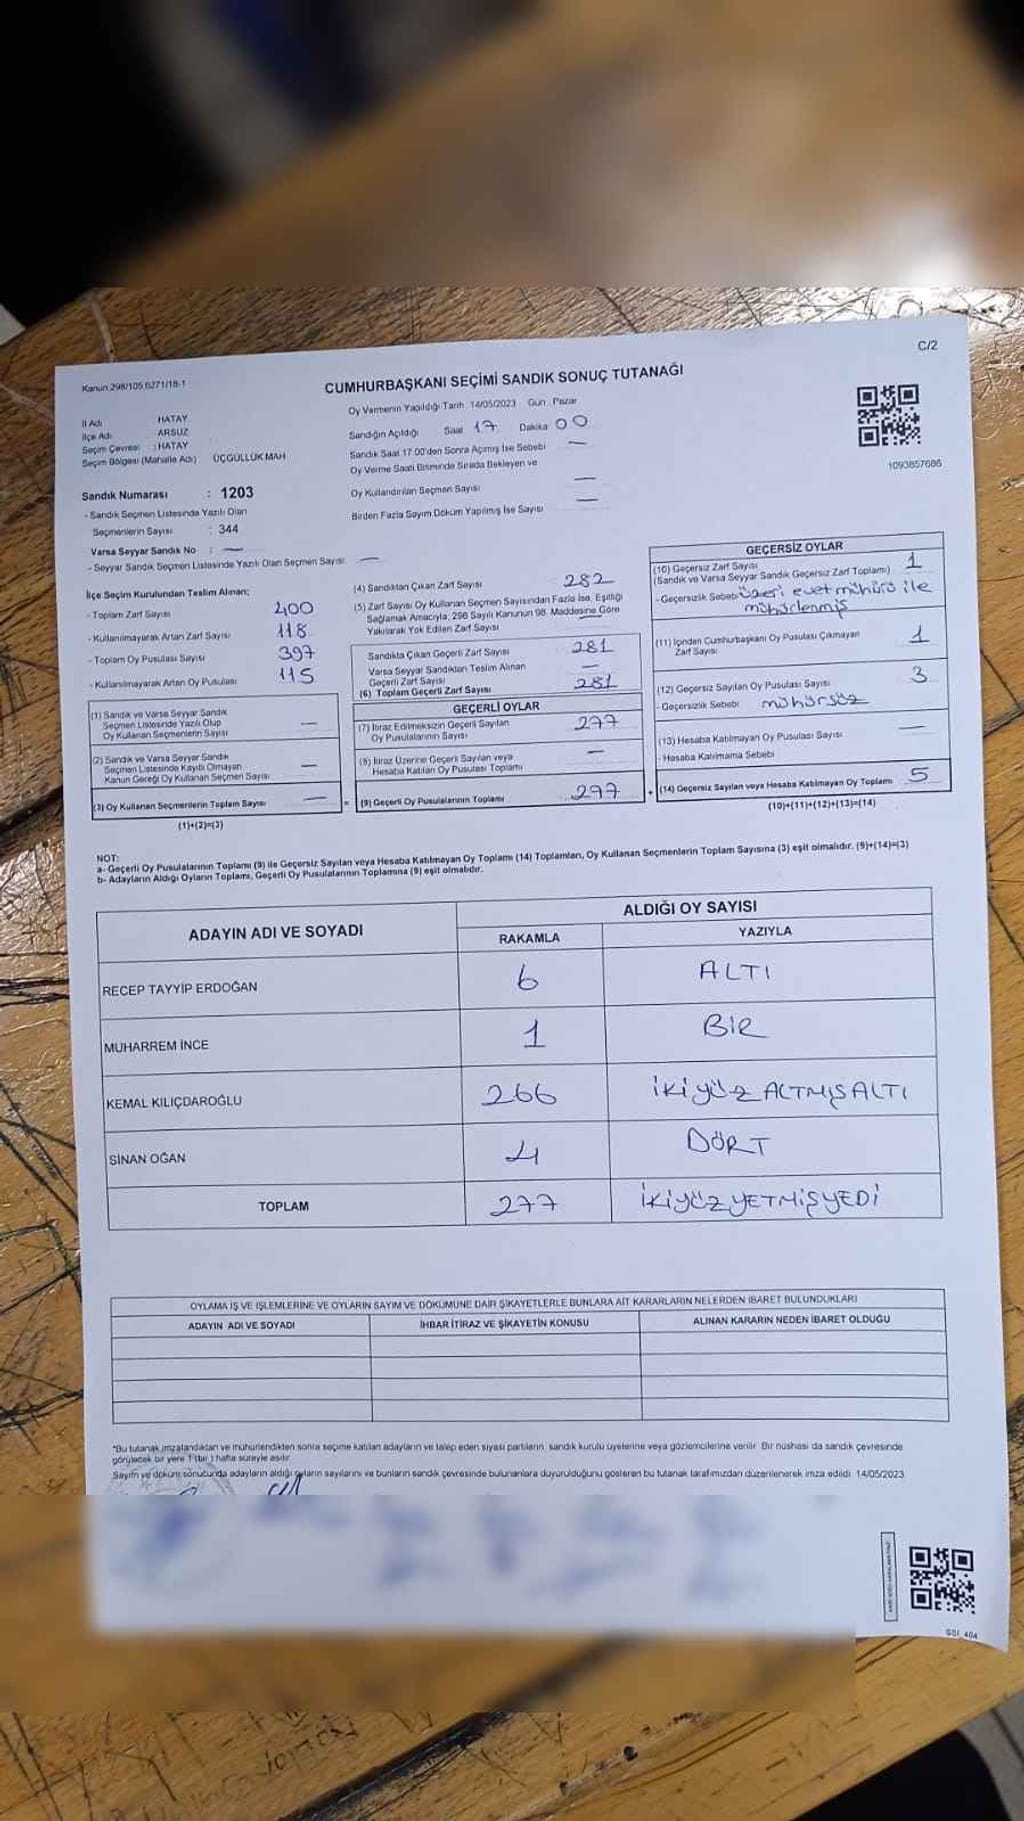 C/2
Kanun 298/105,6271/18-1
CUMHURBAŞKANI SEÇİMİ SANDIK SONUÇ TUTANAĞI
İl Adı HATAY
İlçe Adı ARSUZ
Seçim Çevresi : HATAY
Seçim Bölgesi (Mahalle Adı) ÜÇGÜLLÜK MAH
Oy Vermenin Yapıldığı Tarih 14/05/2023 Gün Pazar
Sandığın Açıldığı Saat 17 Dakika 00
Sandık Saat 17 00'den Sonra Açımış İse Sebebi —
Oy Verme Saati Bitiminde Sırada Bekleyen ve
Oy Kullandırılan Seçmen Sayısı —
Birden Fazla Sayım Döküm Yapılmış İse Sayısı —
1093857686
Sandık Numarası : 1203
- Sandık Seçmen Listesinde Yazılı Olan
Seçmenlerin Sayısı : 344
Varsa Seyyar Sandık No : —
- Seyyar Sandık Seçmen Listesinde Yazılı Olan Seçmen Sayısı —
İlçe Seçim Kurulundan Teslim Alınan;
- Toplam Zarf Sayısı 400
- Kullanılmayarak Artan Zarf Sayısı 118
- Toplam Oy Pusulası Sayısı 397
- Kullanılmayarak Artan Oy Pusulası 115
(1) Sandık ve Varsa Seyyar Sandık
Seçmen Listesinde Yazılı Olup
Oy Kullanan Seçmenlerin Sayısı —
(2) Sandık ve Varsa Seyyar Sandık
Seçmen Listesinde Kayıtlı Olmayan
Kanun Gereği Oy Kullanan Seçmen Sayısı —
(3) Oy Kullanan Seçmenlerin Toplam Sayısı —
(1)+(2)=(3)
(4) Sandıktan Çıkan Zarf Sayısı 282
(5) Zarf Sayısı Oy Kullanan Seçmen Sayısından Fazla İse, Eşitliği
Sağlamak Amacıyla, 298 Sayılı Kanunun 98. Maddesine Göre
Yakılarak Yok Edilen Zarf Sayısı —
Sandıkta Çıkan Geçerli Zarf Sayısı 281
Varsa Seyyar Sandıktan Teslim Alınan
Geçerli Zarf Sayısı —
(6) Toplam Geçerli Zarf Sayısı 281
GEÇERLİ OYLAR
(7) İtiraz Edilmeksizin Geçerli Sayılan
Oy Pusulalarının Sayısı 277
(8) İtiraz Üzerine Geçerli Sayılan veya
Hesaba Katılan Oy Pusulası Toplamı —
= (9) Geçerli Oy Pusulalarının Toplamı 277
GEÇERSİZ OYLAR
(10) Geçersiz Zarf Sayısı 1
(Sandık ve Varsa Seyyar Sandık Geçersiz Zarf Toplamı)
- Geçersizlik Sebebi üzeri evet mührü ile
mühürlenmiş
(11) İçinden Cumhurbaşkanı Oy Pusulası Çıkmayan
Zarf Sayısı 1
(12) Geçersiz Sayılan Oy Pusulası Sayısı 3
- Geçersizlik Sebebi mühürsüz
(13) Hesaba Katılmayan Oy Pusulası Sayısı —
- Hesaba Katılmama Sebebi
+ (14) Geçersiz Sayılan veya Hesaba Katılmayan Oy Toplamı 5
(10)+(11)+(12)+(13)=(14)
NOT:
a- Geçerli Oy Pusulalarının Toplamı (9) ile Geçersiz Sayılan veya Hesaba Katılmayan Oy Toplamı (14) Toplamları, Oy Kullanan Seçmenlerin Toplam Sayısına (3) eşit olmalıdır. (9)+(14)=(3)
b- Adayların Aldığı Oyların Toplamı, Geçerli Oy Pusulalarının Toplamına (9) eşit olmalıdır.
ADAYIN ADI VE SOYADI ALDIĞI OY SAYISI
RAKAMLA YAZIYLA
RECEP TAYYİP ERDOĞAN 6 ALTI
MUHARREM İNCE 1 BİR
KEMAL KILIÇDAROĞLU 266 İKİYÜZ ALTMIŞALTI
SİNAN OĞAN 4 DÖRT
TOPLAM 277 İKİYÜZYETMİŞYEDİ
OYLAMA İŞ VE İŞLEMLERİNE VE OYLARIN SAYIM VE DÖKÜMÜNE DAİR ŞİKAYETLERLE BUNLARA AİT KARARLARIN NELERDEN İBARET BULUNDUKLARI
ADAYIN ADI VE SOYADI İHBAR İTİRAZ VE ŞİKAYETİN KONUSU ALINAN KARARIN NEDEN İBARET OLDUĞU
*Bu tutanak imzalandıktan ve mühürlendikten sonra seçime katılan adayların ve talep eden siyasi partilerin sandık kurulu üyelerine veya gözlemcilerine verilir. Bir nüshası da sandık çevresinde
görülecek bir yere 1 (bir) hafta süreyle asılır
Sayım ve döküm sonucunda adayların aldığı oyların sayılarını ve bunların sandık çevresinde bulunanlara duyurulduğunu gösteren bu tutanak tarafımızdan düzenlenerek imza edildi 14/05/2023
SSI_404